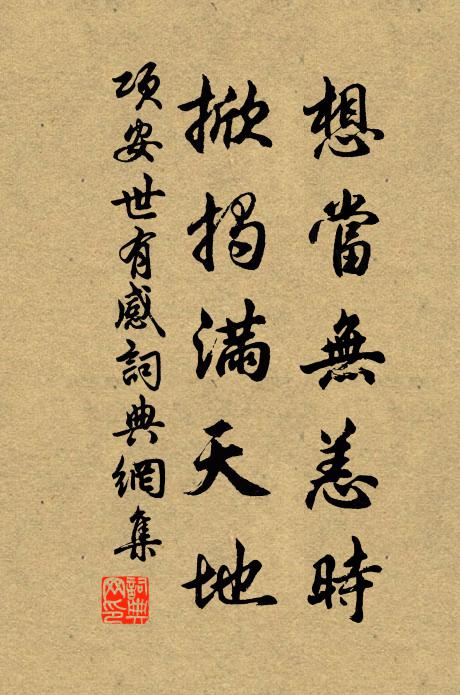 想當無恙時
掀揭滿天地
項安世有感詞典網集
詞典
网印